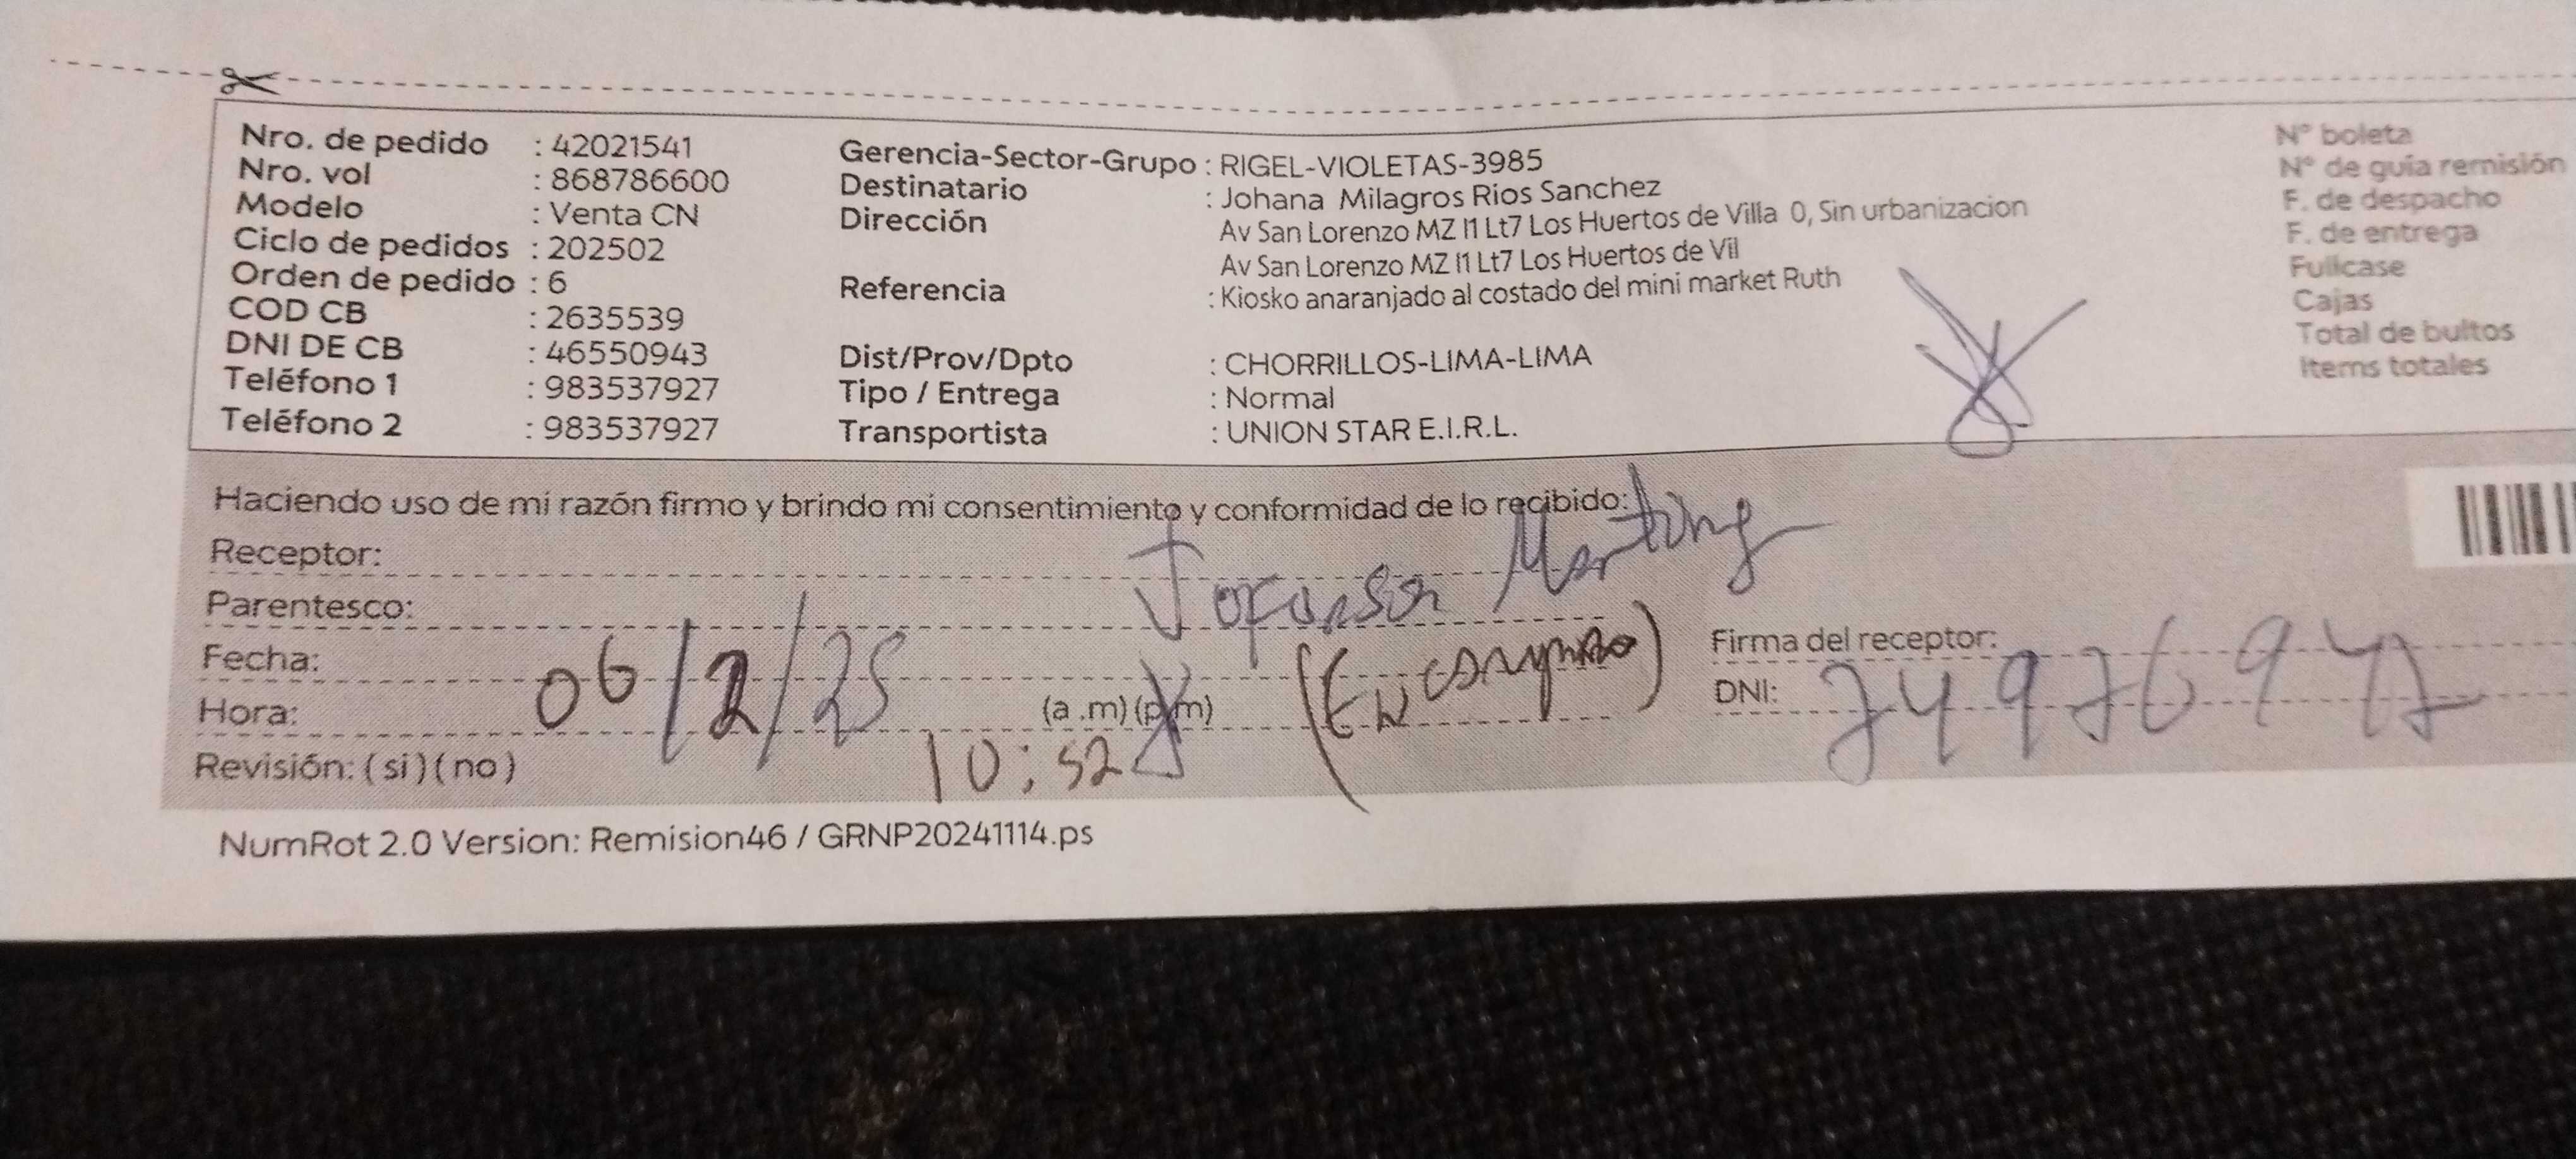 Nro. de pedido : 42021541
Nro. vol : 868786600
Modelo : Venta CN
Ciclo de pedidos : 202502
Orden de pedido : 6
COD CB : 2635539
DNI DE CB : 46550943
Teléfono 1 : 983537927
Teléfono 2 : 983537927
Gerencia-Sector-Grupo : RIGEL-VIOLETAS-3985
Destinatario : Johana Milagros Rios Sanchez
Dirección Av San Lorenzo MZ I1 Lt7 Los Huertos de Villa 0, Sin urbanizacion
Av San Lorenzo MZ I1 Lt7 Los Huertos de Vil
Referencia : Kiosko anaranjado al costado del mini market Ruth
Dist/Prov/Dpto : CHORRILLOS-LIMA-LIMA
Tipo / Entrega : Normal
Transportista : UNION STAR E.I.R.L.
N° boleta
N° de guía remisión
F. de despacho
F. de entrega
Fullcase
Cajas
Total de bultos
Items totales
Haciendo uso de mi razón firmo y brindo mi consentimiento y conformidad de lo recibido:
Receptor:
Parentesco:
Fecha: 06/2/25
Hora: (a .m) (p.m) 10:52
Revisión: (si) (no)
Firma del receptor:
DNI:
NumRot 2.0 Version: Remision46 / GRNP20241114.ps